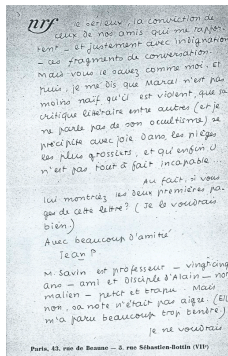 nrf
le sérieux, la conviction de
ceux de nos amis qui me rappor-
tent – et justement avec indignation
– ces fragments de conversation.
Mais vous le savez comme moi. Et
puis, je me dis que Marcel n'est pas
moins naïf qu'il est violent, que sa
critique littéraire entre autres (et je
ne parle pas de son occultisme) se
précipite avec joie dans les pièges
les plus grossiers, et qu'enfin il
n'est pas tout à fait incapable...
Au fait, si vous
lui montriez les deux premières pa-
ges de cette lettre? (Je le voudrais
bien.)
Avec beaucoup d'amitié
Jean P
M. Savin est professeur – vingt-cinq
ans – ami et disciple d'Alain – nor-
malien – petit et trapu. Mais
non, sa note n'était pas aigre. (Elle
m'a paru beaucoup trop tendre.)
Je ne voudrais
Paris, 43, rue de Beaune — 5, rue Sébastien-Bottin (VIIe)